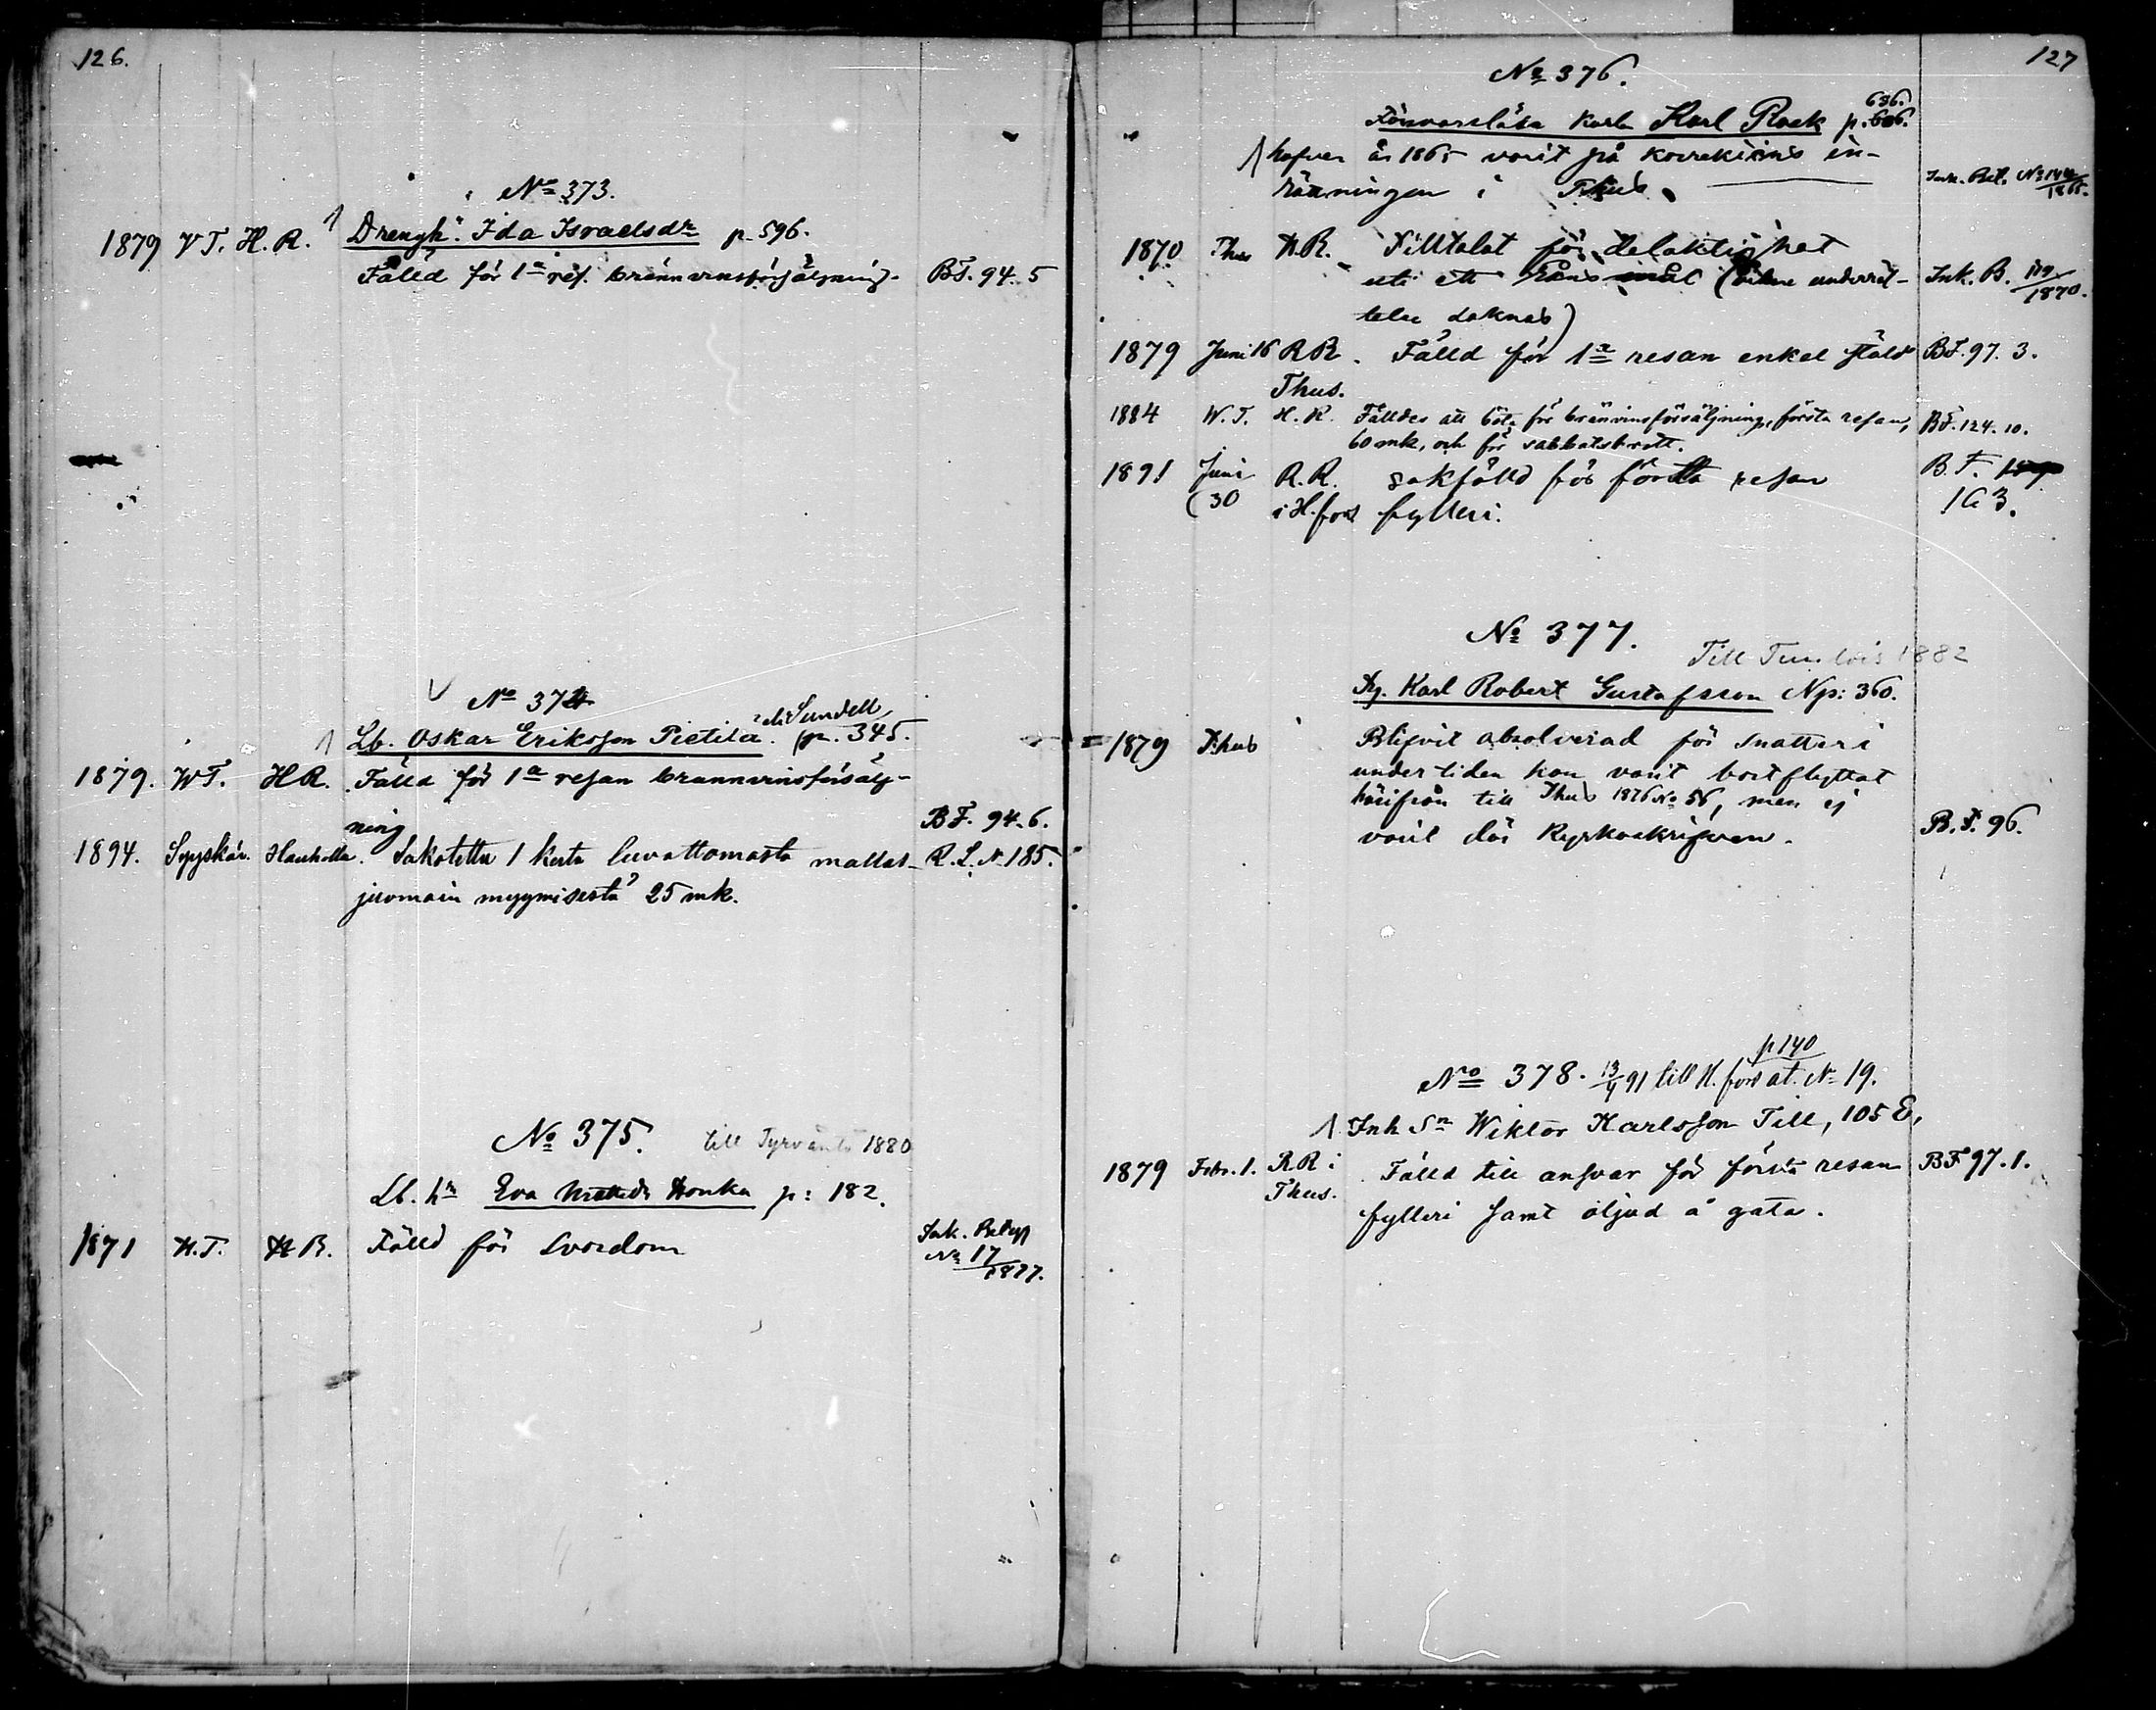 126.
No 373.
1879 VT. H. R. Drengh. Ida Israelsdr p. 596.
Fälld för 1a res. brännvinsförsäljning. BF. 94. 5
No 374
Lb. Oskar Eriksson Pietilä. Sundell p. 345.
1879. WT. HR. Fälld för 1a resan brannvinsförsälj-
ning BF. 94. 6.
1894. Syyskär. Hauholla. Sakotettu 1 kerta luvattomasta mallas- R. L. N. 185.
juomain myymisestä 25 mk.
No 375. till Tyrväntö 1880
Lb. hn Eva Honka p: 182.
1871 H.T. HR. Fälld för Lvordom Ink. Betyg
No 17/1877.
127
No 376.
636.
Försvarslösa karln Karl Rock p. 606.
hafver år 1865 varit på korrektions in-
rättningen i Thus. Ink. Bet. No 144/1865.
1870 Thus HR. Tilltalat för delaktighet
uti ett råns mål (vidare underrät- Ink. B. 119/1870.
telse saknas)
1879 Juni 16 RR. Fälld för 1a resan enkel stöld BF. 97. 3.
Thus.
1884 W. T. H. R. Fälldes att böta för bränvinsförsäljning, första resan, BF. 124. 10.
60 mk, och för sabbatsbrott.
1891 Juni R.R. sakfälld för första resan B. F.
(30 i H.fors fylleri. 163.
No 377. Till 1882
Dg. Karl Robert Gustafsson Np: 360.
1879 Thus Blifvit absolverad för snatteri
under tiden han varit bortflyttat
härifrån till Thus 1876 No 56, men ej
varit där Kyrkoskrifven. B. F. 96.
p 140
No 378. 13/4 91 till H. fors at. No 19.
Inh Sn Wiktor Karlsson Till, 105 E,
1879 Febr. 1. RR i Fälld till ansvar för första resan BF 97. 1.
Thus. fylleri samt oljud å gata.